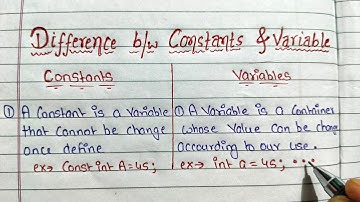 Difference b/w Constants & Variable
Constants
Variables
① A Constant is a Variable
that cannot be change
once define
ex→ Const int A=45;
① A Variable is a Container
whose value can be change
according to our use.
ex→ int a=45; ...